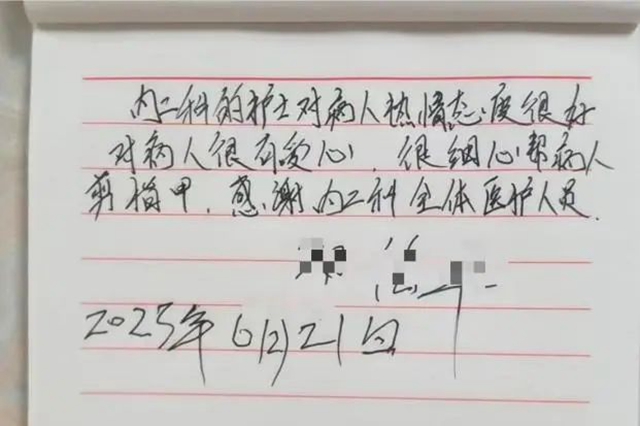 内二科的护士对病人热情态度很好
对病人很有爱心、很细心帮病人
剪指甲,感谢内二科全体医护人员.
2025年6月21日